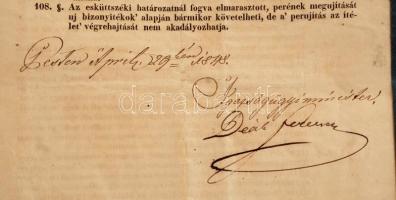 108. §. Az esküttszéki határozatnál fogva elmarasztott, perének megujitását
uj bizonyitékok' alapján bármikor követelheti, de a' perujitás az íté-
let' végrehajtását nem akadályozhatja.
Pesten April 29kén 1848.
Igazságügyiminister,
Deák Ferencz
darabanth